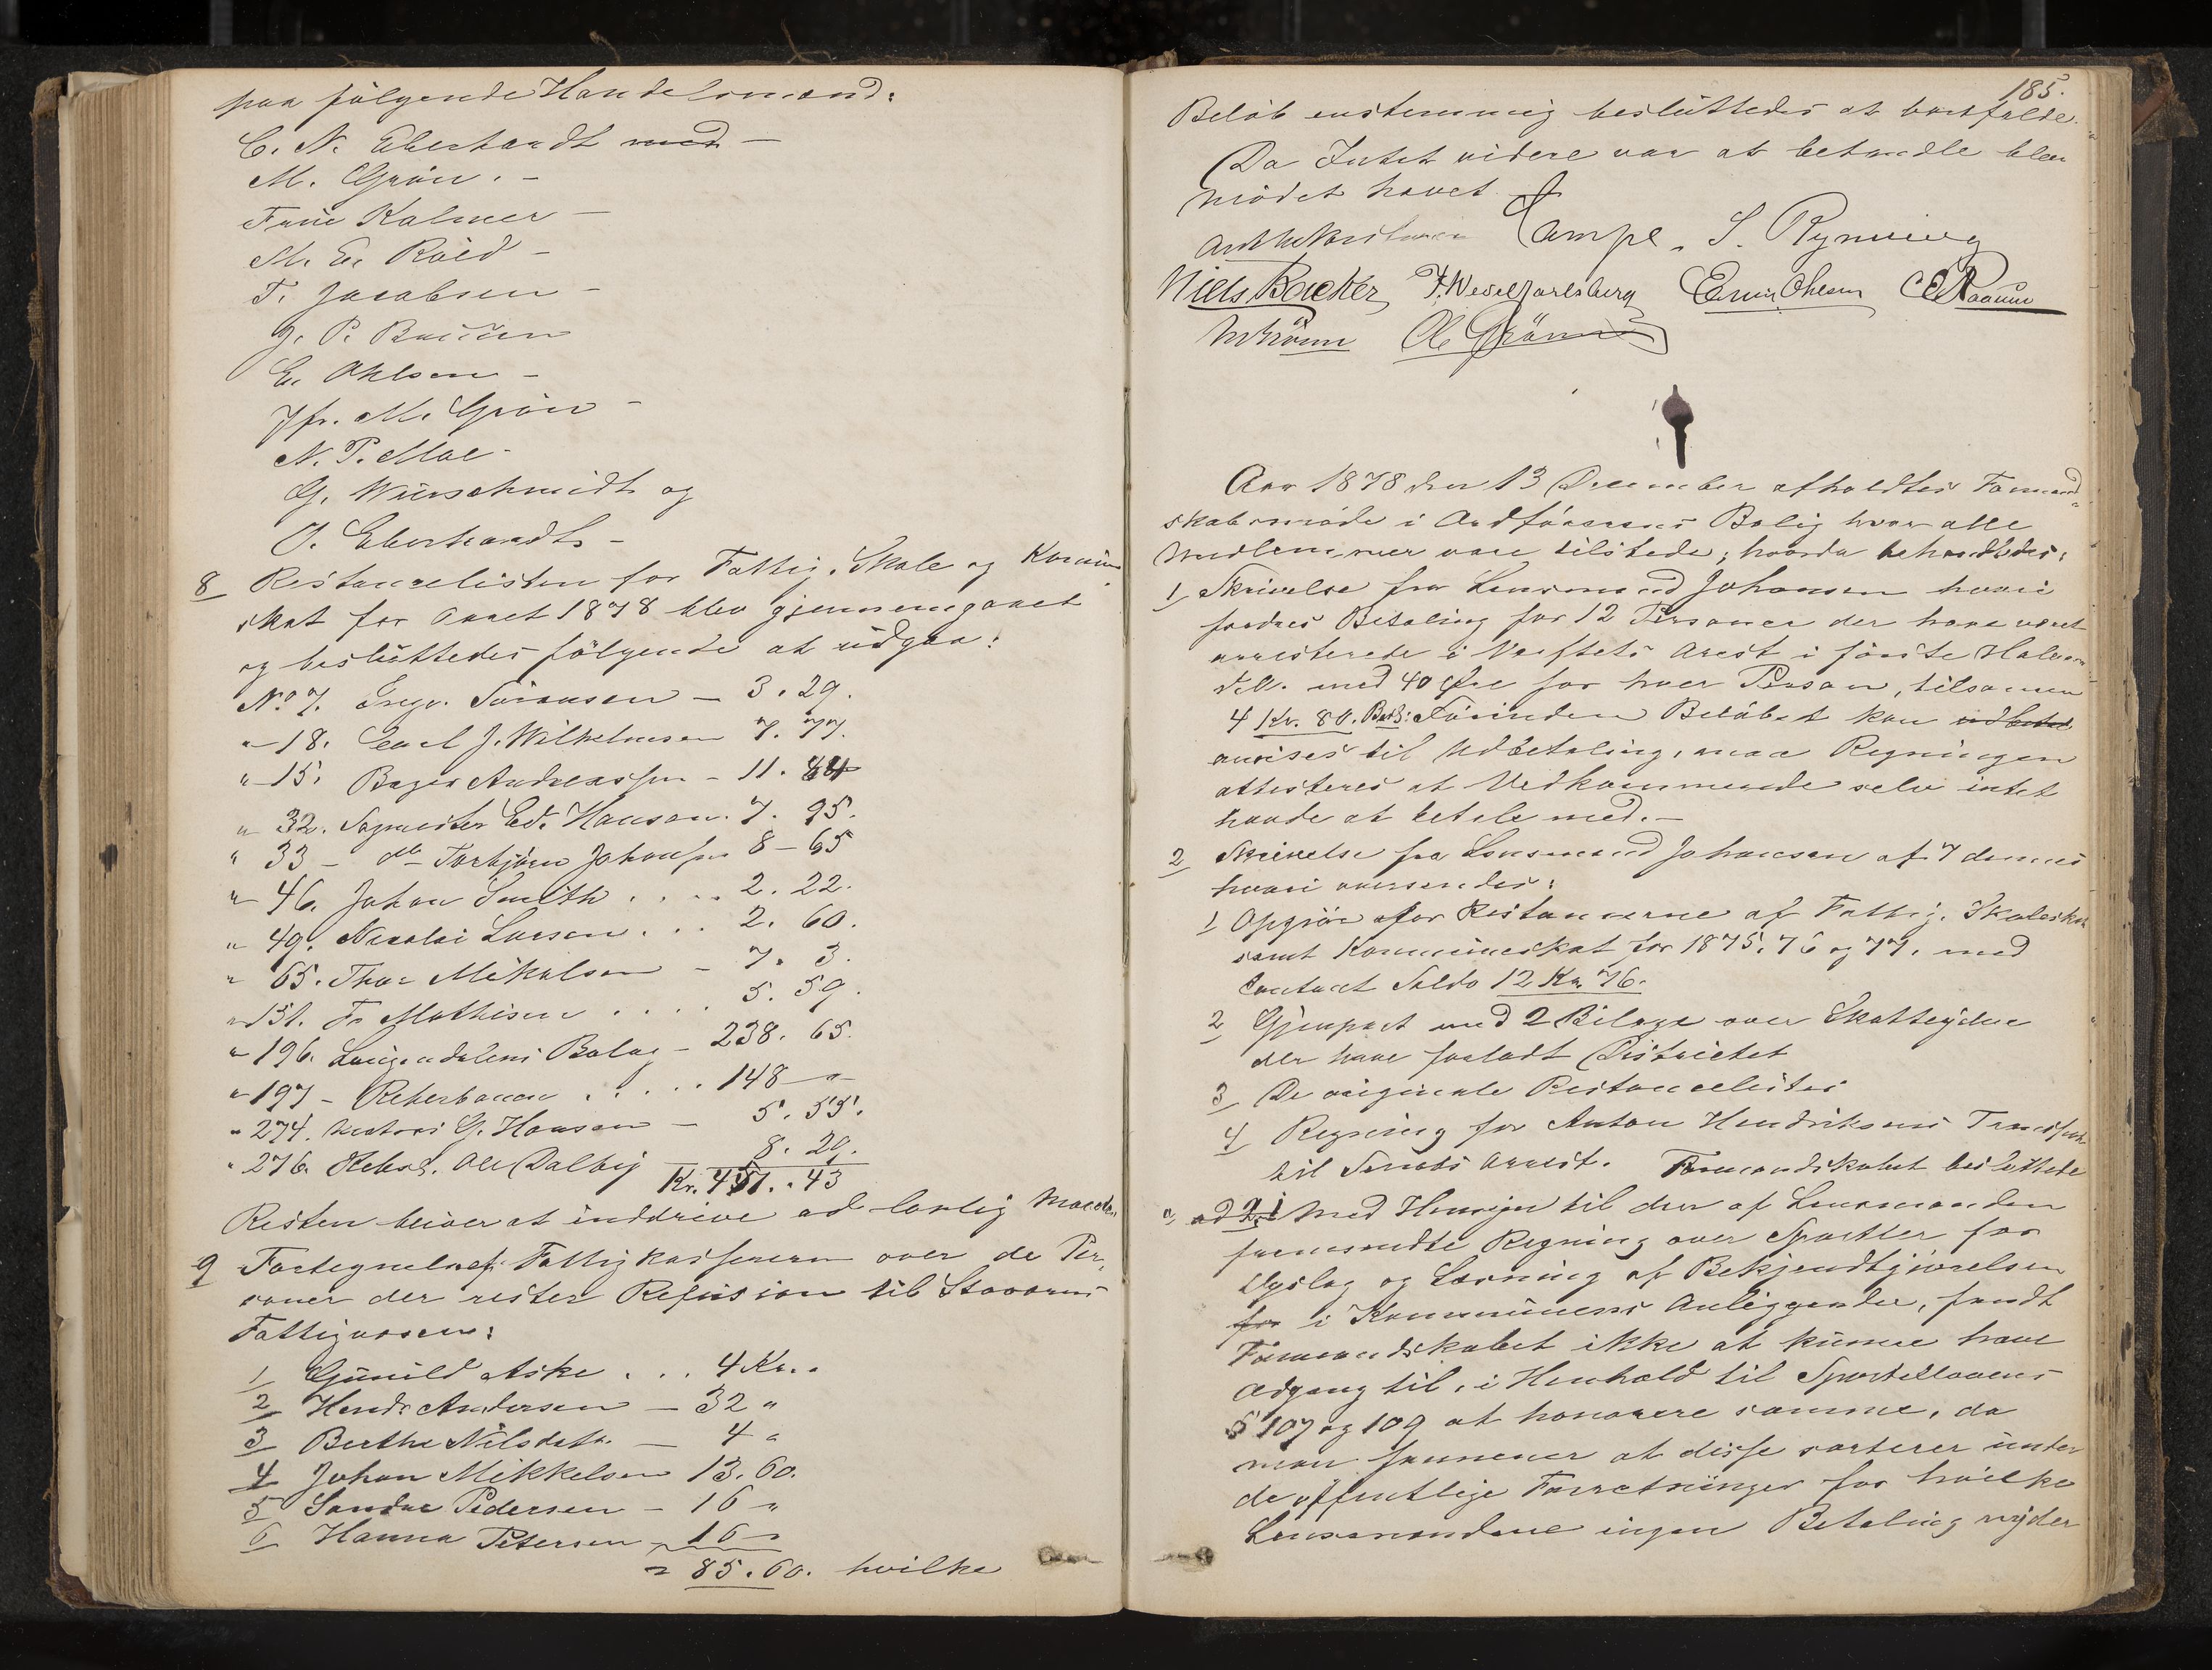 paa følgende Handelsmænd:
C. N. Eberhardt med —
M. Grön. –
Frue Kalmer –
M. E. Röed –
T. Jacobsen –
J. P. Baüren
E. Ohlsen –
Jfr. M. Grön –
N. P. Moe –
G. Würschmidt og
J. Eberhardt –
8 Restancelisten for Fattig, Skole og Kommüne
skat for Aaret 1878 blev gjennemgaaet
og beslüttedes følgende at üdgaa:
No 7. Gregr. Sörensen – 3. 29.
" 18. Carl J. Wilhelmsen 7. 77.
" 15. Bager Andreassen – 11. 84
" 32. Sagmester Ed. Hansen. 7. 95.
" 33 – do Torbjörn Johansen 8 – 65
" 46. Johan Smith . . . . 2. 22.
" 49. Nicolai Larsen . . . 2. 60.
" 65. Thor Mikalsen – 7. 3.
" 131. Fr Mathisen . . . . 5. 59.
" 196. Laügendalens Bolag – 238. 65.
" 197 – Reherbanen . . . . 148 – "
" 274. Matros G. Hansen – 5. 55.
" 276. Ole Dalby 8. 29.
Kr. 457. 43
Resten bliver at inddrive ad lovlig Maade.
9 Fortegnelse fr Fattigkassereren over de Per-
soner der rester Refüsion til Staværns
Fattigvæsen:
1 Günild Aske . . . 4 Kr. "
2 Hendr Andersen – 32 "
3 Berthe Nilsdatr. — 4 "
4 Johan Mikkelsen 13. 60.
5 Sandue Pedersen – 16 "
6 Hanna Petersen 16 "
= 85. 60. hvilke
185.
Beløb enstemmig beslüttedes at bortfalde.
Da Intet videre var at behandle blev
Mödet hævet.
Lampe. S. Rynning
Niels Backer, F. Wedel Jarlsberg Emin Ohlsen C E Paaüm
M Grönn Ol. Grönn
Aar 1878 den 13 December afholdtes Formand-
skabsmöde i Ordförerens Bolig hvor alle
Medlemmer vare tilstede; hvorda behandledes:
1 Skrivelse fra Lensmand Johansen hvori
fordres Betaling for 12 Personer der have været
arresterede i Værftets Arest i förste Halvaar
d.A. med 40 Öre for hver Person, tilsammen
4 Kr. 80. Besl: Förinden Beløbet kan udbetal
anvises til Udbetaling, maa Regningen
attesteres at Vedkommende selv intet
havde at betale med. –
2 Skrivelse fra Lensmand Johansen af 7 dennes
hvori oversendes:
1 Opgjör over Restancerne af Fattig, Skoleskat
samt Kommüneskat for 1875. 76 og 77. med
Contant Saldo 12 Kr. 76.
2 Gjenpart med 2 Bilage over Skatteydere
der have forladt Districtet
3 De originale Restancelister
4 Regning for Anton Hendriksens Transport
til Arrest. Formandskabet besluttede
a, ad 2.1 Med Hensyn til den af Lensmanden
fremsendte Regning over Sportler for
Opslag og Læsning af Bekjendtgjörelsen
for i Kommünens Anliggender, fandt
Formandskabet ikke at künne have
Adgang til, i Henhold til Sportellovens
§ 107 og 109 at honorere samme, da
man formener at disse sorterer ünder
de offentlige Forretninger for hvilke
Lensmændene ingen Betaling nyder